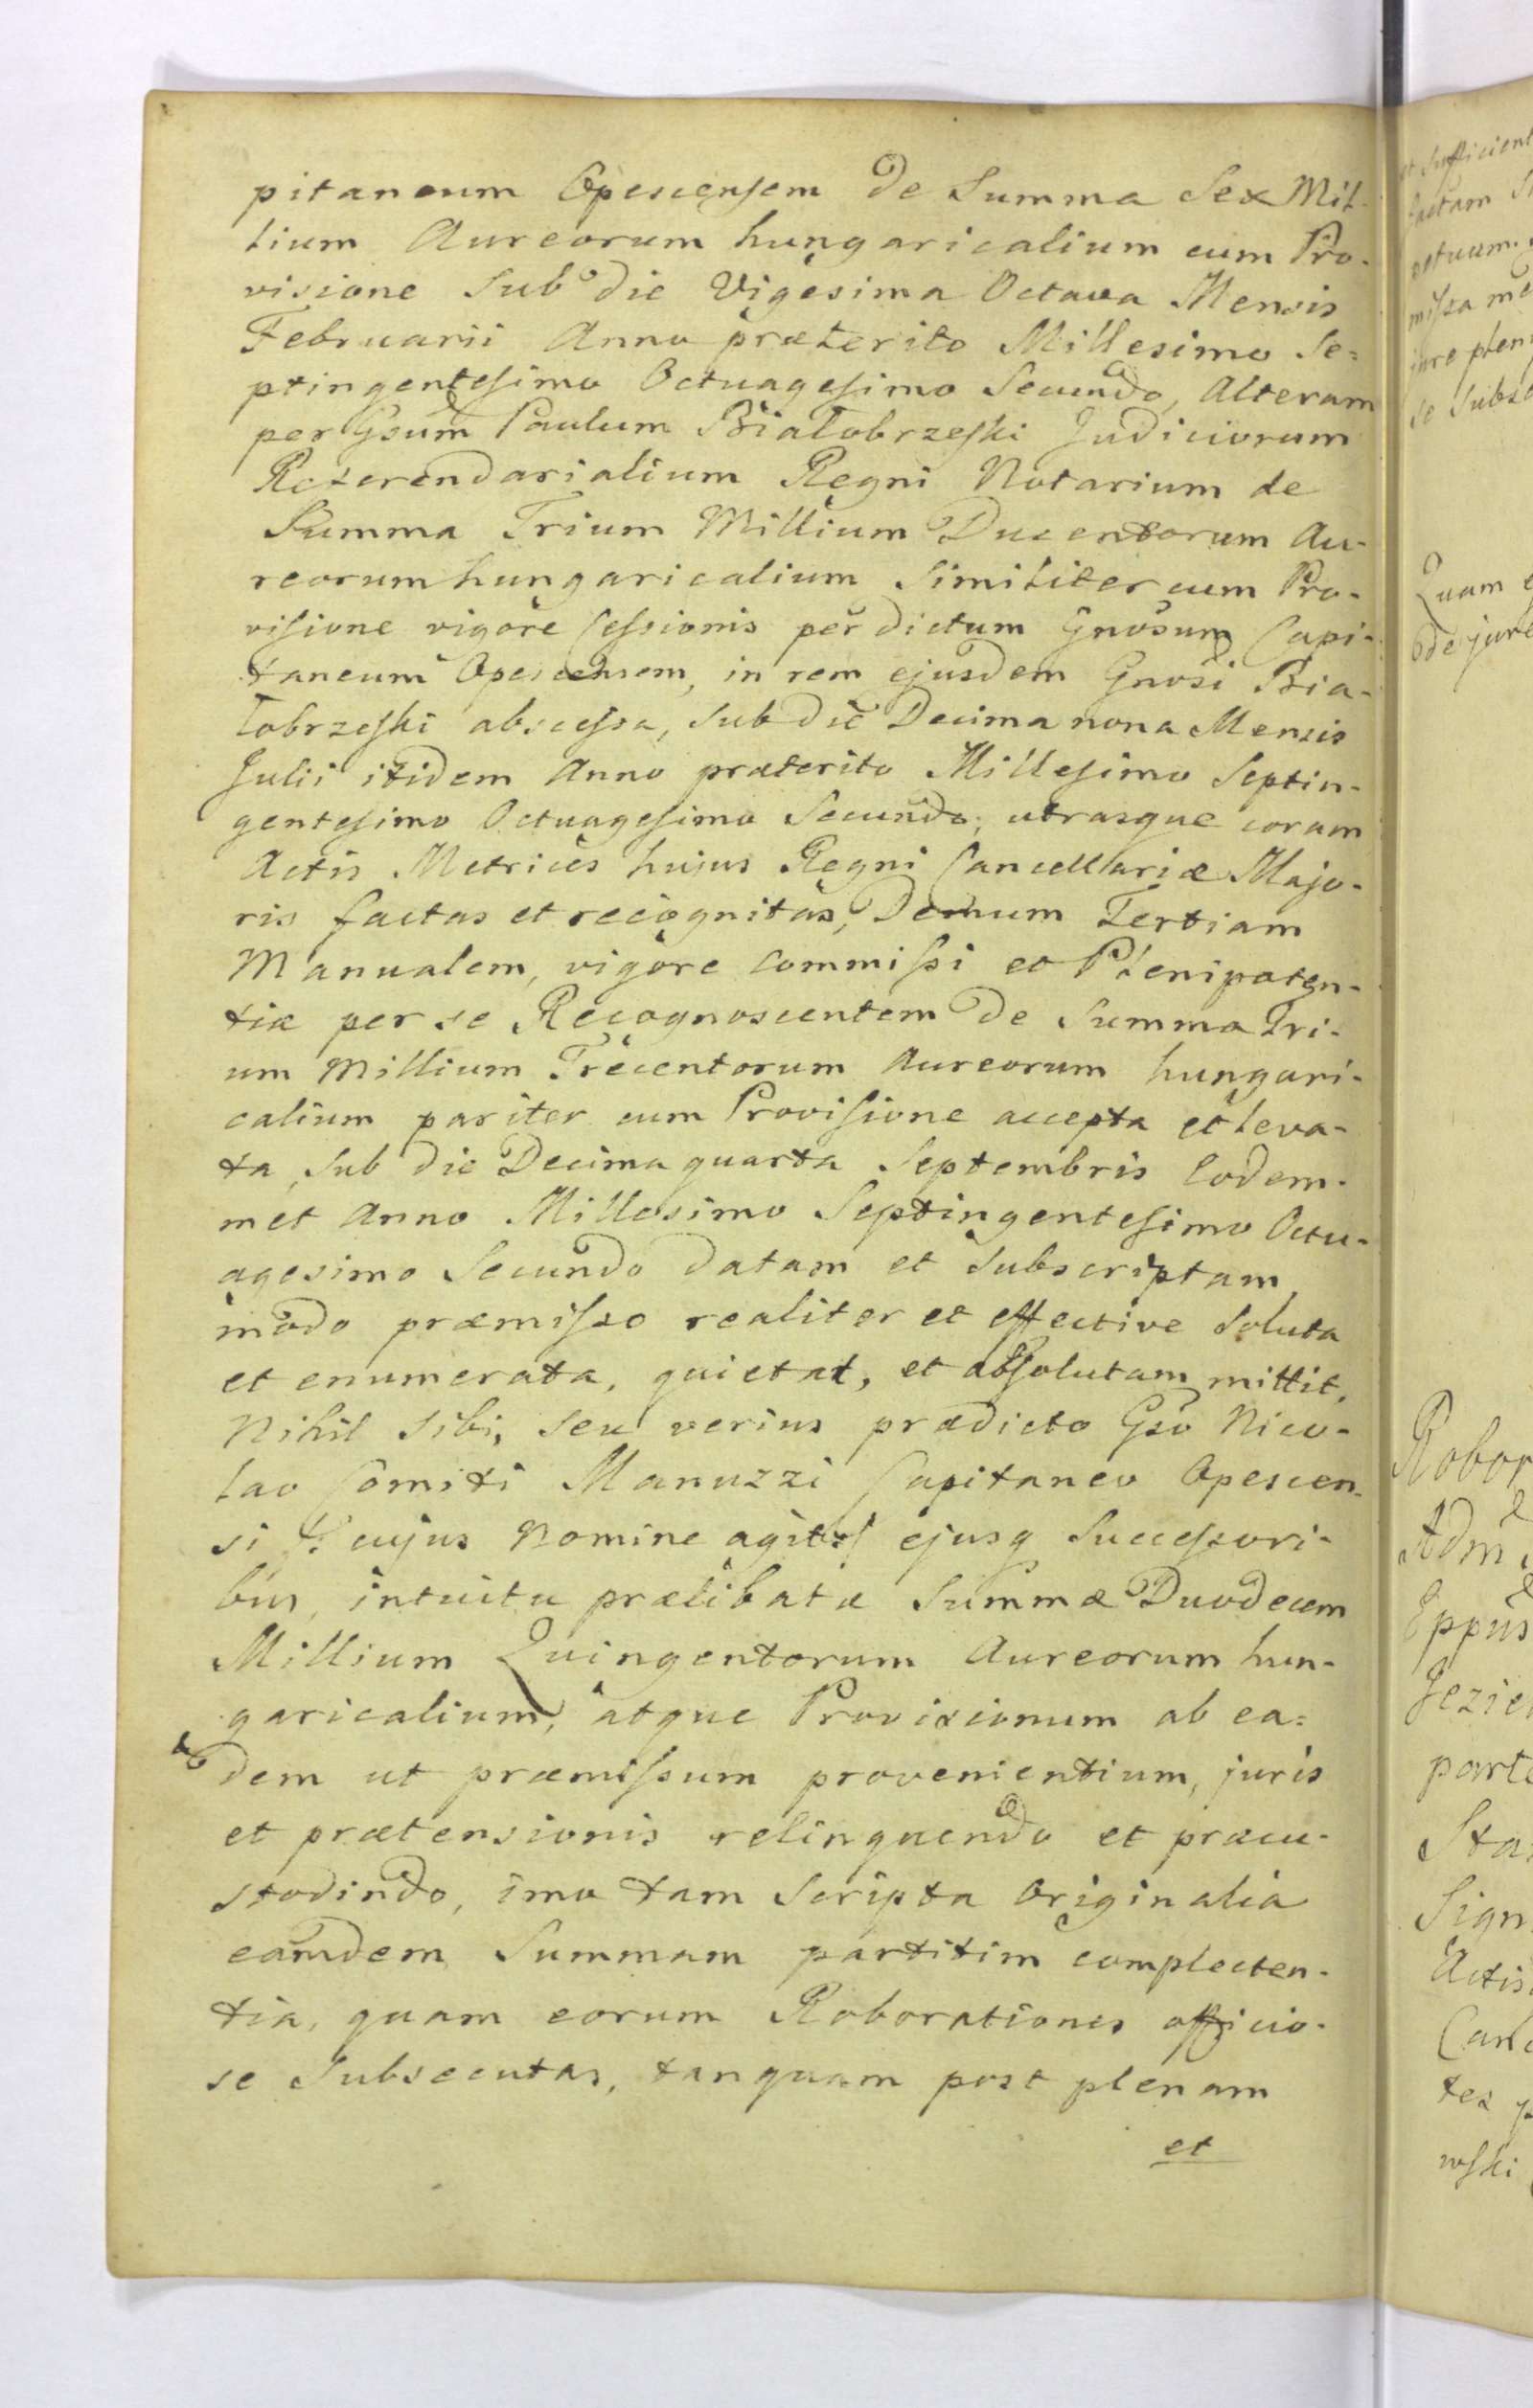 pitaneum Opescensem de Summa Sex Mil-
lium Aureorum hungaricalium cum Pro-
visione Sub die Vigesima Octava Mensis
Februarii Anno præterito Millesimo Se=
ptingentesimo Octuagesimo Secundo, Alteram
per Gsum Paulum Białobrzeski Judiciorum
Referendarialium Regni Notarium de
Summa Trium Millium Ducentorum Au-
reorum hungaricalium Similiter cum Pro-
visione vigore Cessionis per dictum Gnosum Capi-
taneum Opescensem, in rem ejusdem Gnosi Bia-
łobrzeski abscessa, Sub die Decima nona Mensis
Julii itidem Anno præterito Millesimo Septin-
gentesimo Octuagesimo Secundo; utrasque coram
Actis Metrices hujus Regni Cancellariæ Majo-
ris factas et recognitas, Demum Tertiam
Manualem, vigore Commissi et Plenipoten-
tiæ per se Recognoscentem de Summa Tri-
um Millium Trecentorum Aureorum hungari-
calium pariter cum Provisione accepta et leva-
ta, Sub die Decima quarta Septembris Eodem-
met Anno Millesimo Septingentesimo Octu-
agesimo Secundo datam et Subscriptam,
modo præmisso realiter et effective Soluta
et enumerata, quietat, et absolutam mittit,
Nihil Sibi, Seu verius prædicto Gso Nico-
lao Comiti Manuzzi Capitaneo Opescen-
si cujus Nomine ejusq Successori-
bus, intuitu prælibatæ Summæ Duodecem
Millium Quingentorum Aureorum hun-
garicalium, atque Provisionum ab ea=
dem ut præmissum provenientium, juris
et prætensionis relinquendo et præcu-
stodindo, imo tam Scripta Originalia
eamdem Summam partitim complecten-
tia, quam eorum Roborationes officio-
se Subsecutas, tanquam post plenam
et
et Sufficient
factam
missa me
iure plen
se Subs
Quam
de jure
Robor
Adm
Eppus
Jezie
parte
Sta
Sign
Actis
Canc
tes p
wski